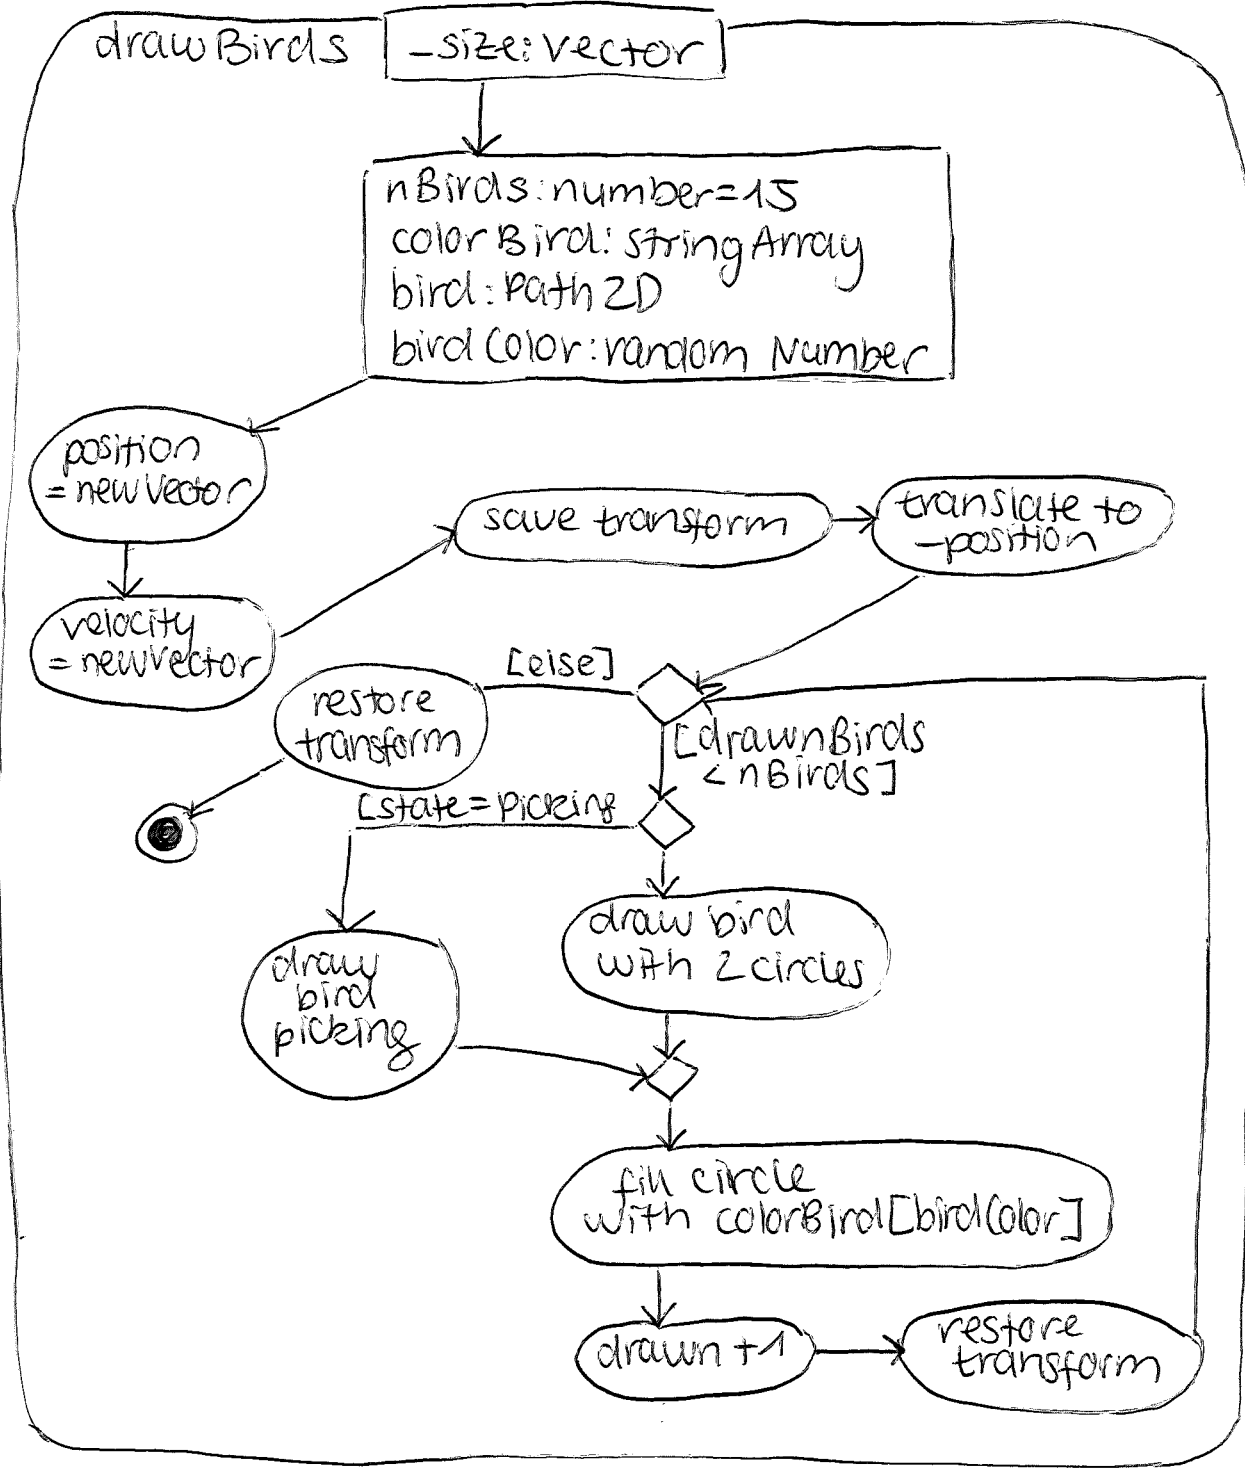 drawBirds
_size:Vector
nBirds:number=15
colorBird:stringArray
bird:Path2D
birdColor:random Number
position
=newVector
save transform
translate to
_position
velocity
=newVector
[else]
restore
transform
[drawnBirds
< nBirds]
[state=picking
draw bird
with 2circles
draw
bird
picking
fill circle
with colorBird[birdColor]
drawn+1
restore
transform